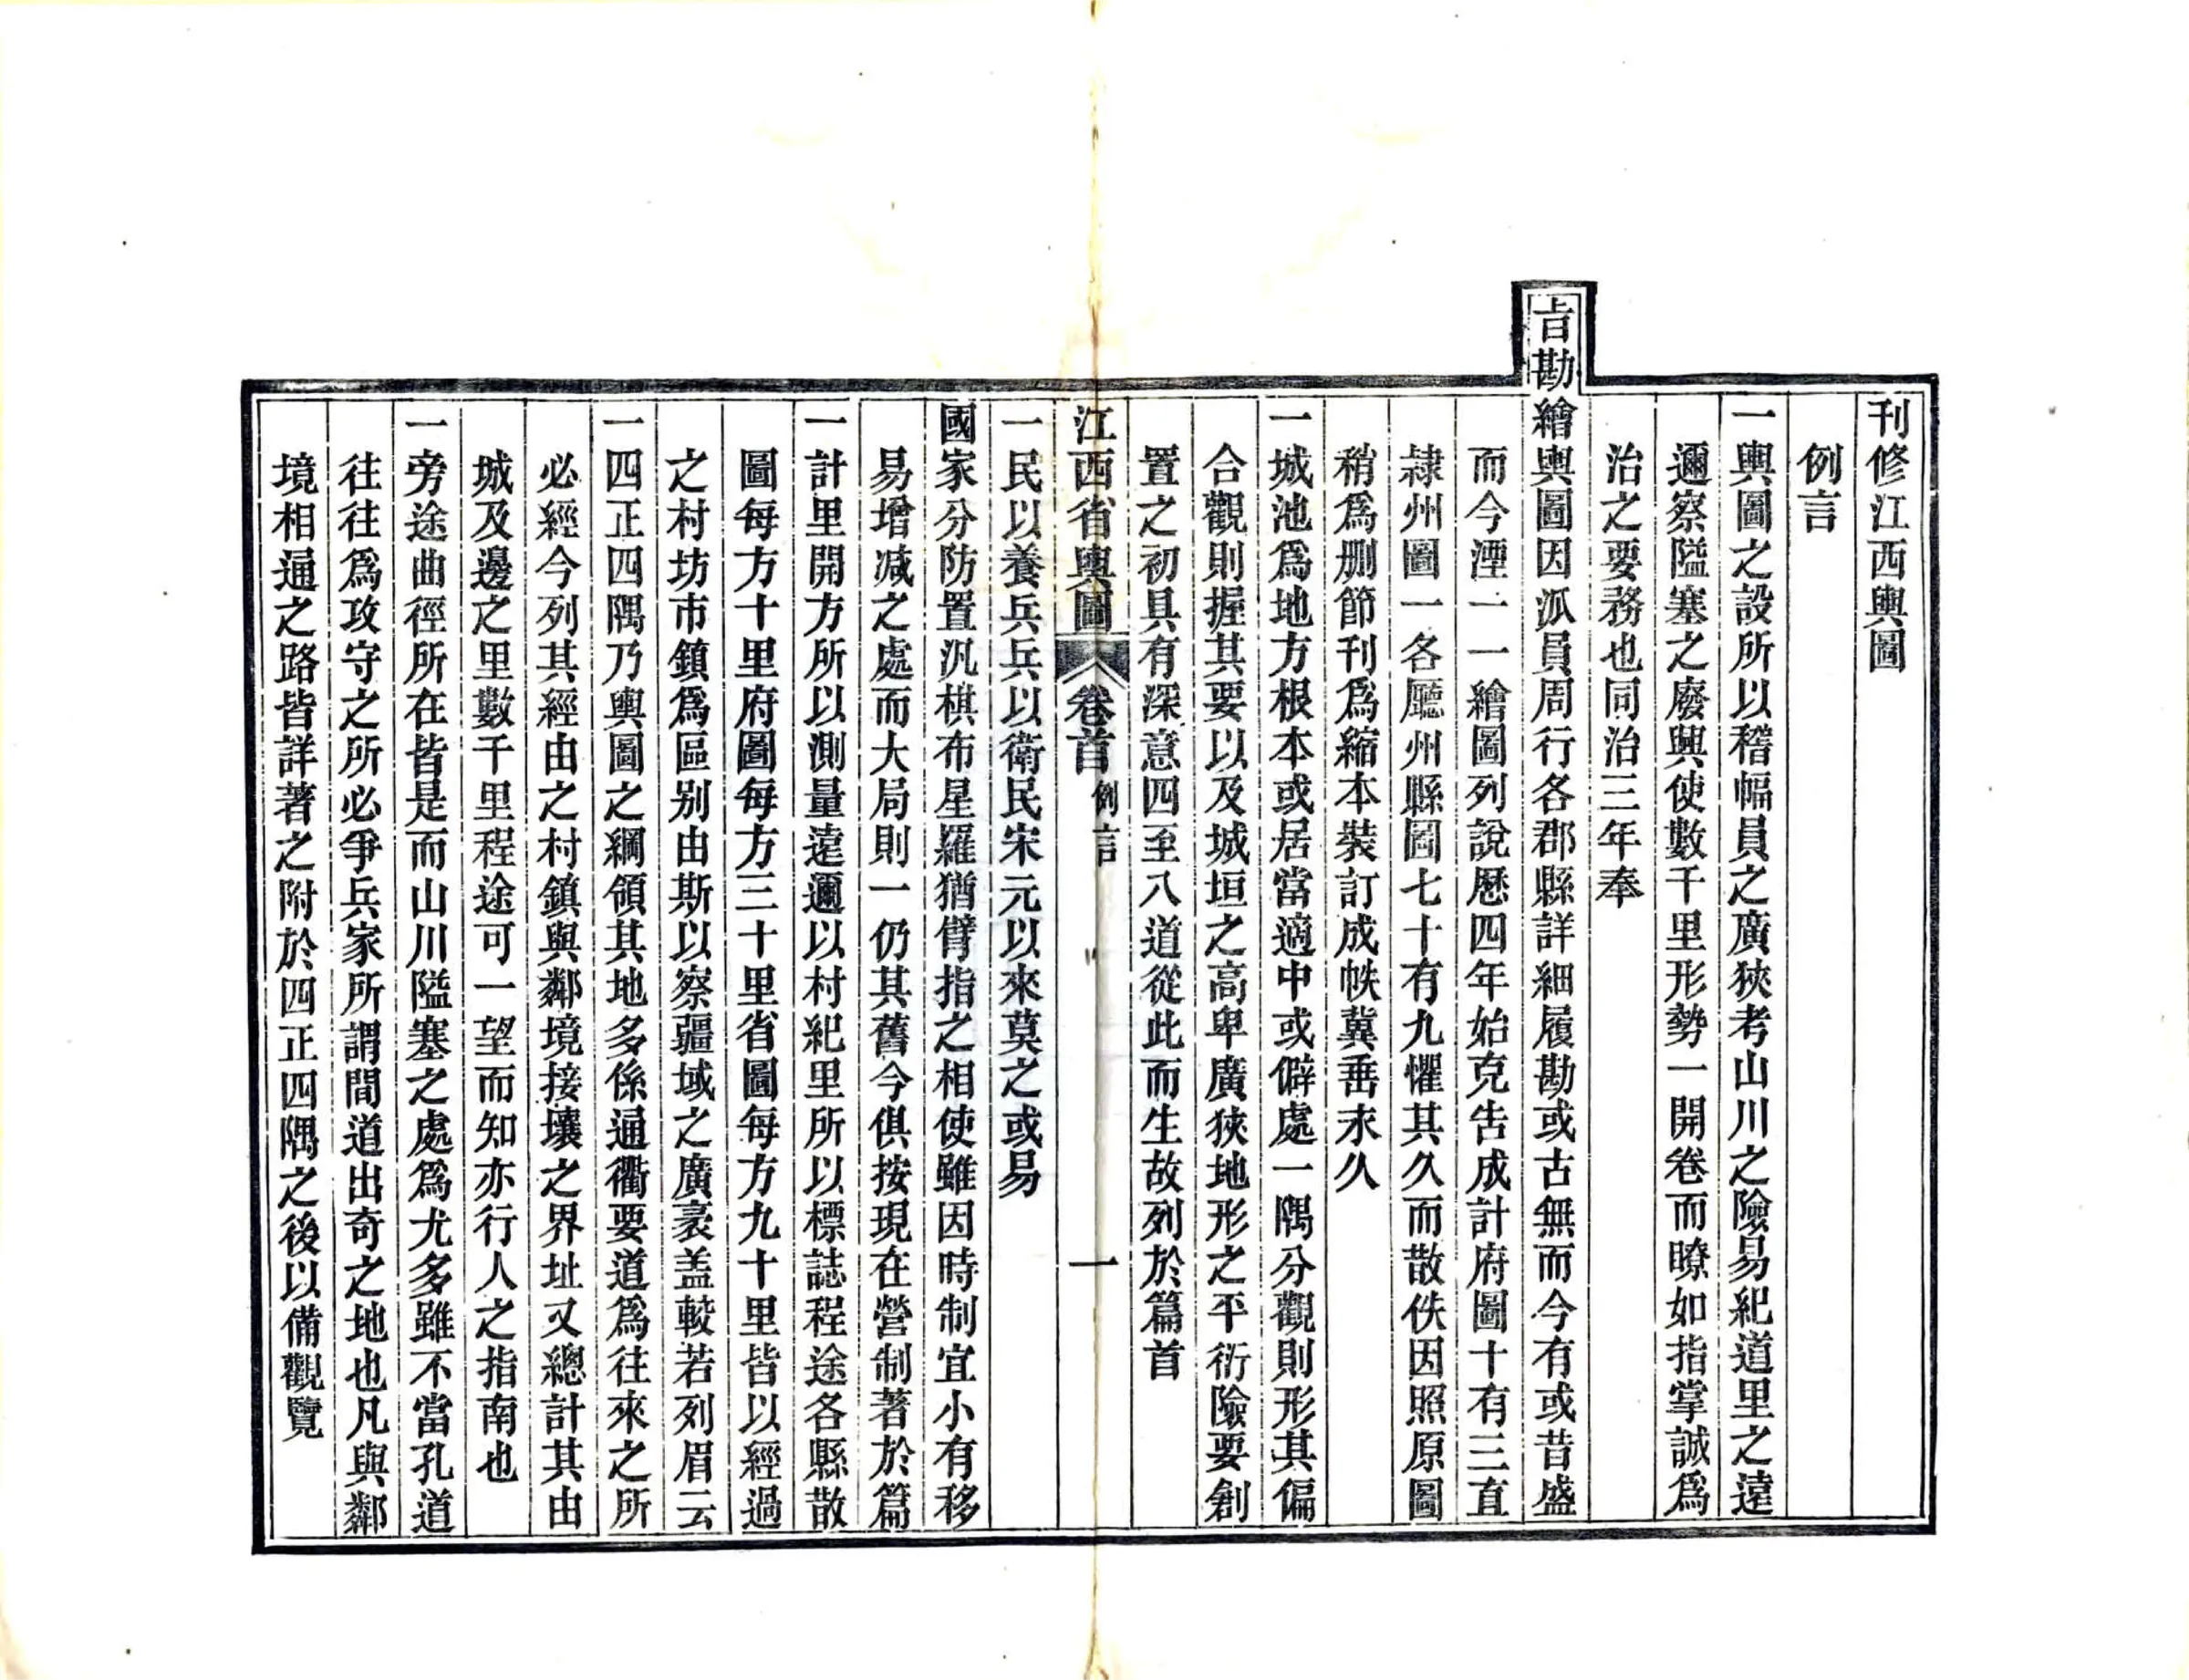 刊修江西輿圖
例言
一輿圖之設所以稽幅員之廣狹考山川之險易紀道里之遠
邇察隘塞之廢興使數千里形勢一開卷而瞭如指掌誠爲
治之要務也同治三年奉
旨勘繪輿圖因派員周行各郡縣詳細履勘或古無而今有或昔盛
而今湮一一繪圖列說歷四年始克告成計府圖十有三直
隸州圖一各廳州縣圖七十有九懼其久而散佚因照原圖
稍爲刪節刊爲縮本裝訂成帙冀垂永久
一城池爲地方根本或居當適中或僻處一隅分觀則形其偏
合觀則握其要以及城垣之高卑廣狹地形之平衍險要創
置之初具有深意四至八道從此而生故列於篇首
江西省輿圖 卷首 例言 一
一民以養兵兵以衛民宋元以來莫之或易
國家分防置汛棋布星羅猶臂指之相使雖因時制宜小有移
易增減之處而大局則一仍其舊今俱按現在營制著於篇
一計里開方所以測量遠邇以村紀里所以標誌程途各縣散
圖每方十里府圖每方三十里省圖每方九十里皆以經過
之村坊市鎮爲區别由斯以察疆域之廣袤盖較若列眉云
一四正四隅乃輿圖之綱領其地多係通衢要道爲往來之所
必經今列其經由之村鎮與鄰境接壤之界址又總計其由
城及邊之里數千里程途可一望而知亦行人之指南也
一旁途曲徑所在皆是而山川隘塞之處爲尤多雖不當孔道
往往爲攻守之所必爭兵家所謂間道出奇之地也凡與鄰
境相通之路皆詳著之附於四正四隅之後以備觀覽